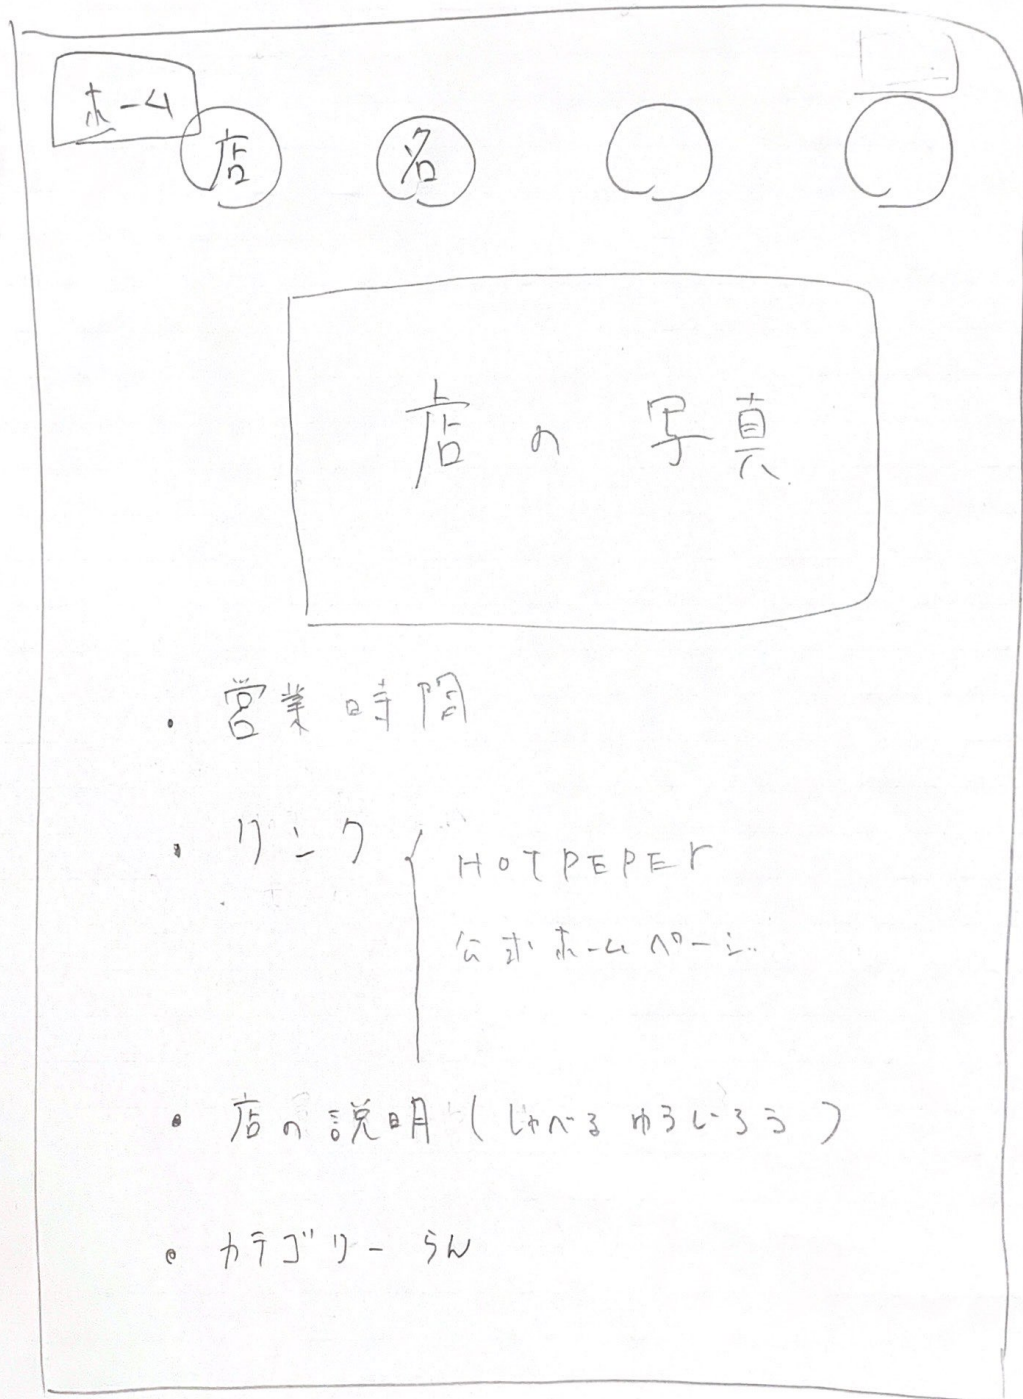 ホーム
店 名
店の写真
・営業時間
・リンク
HOTPEPEr
公式ホームページ
・店の説明(じゃべるゆうじろう)
・カテゴリーらん